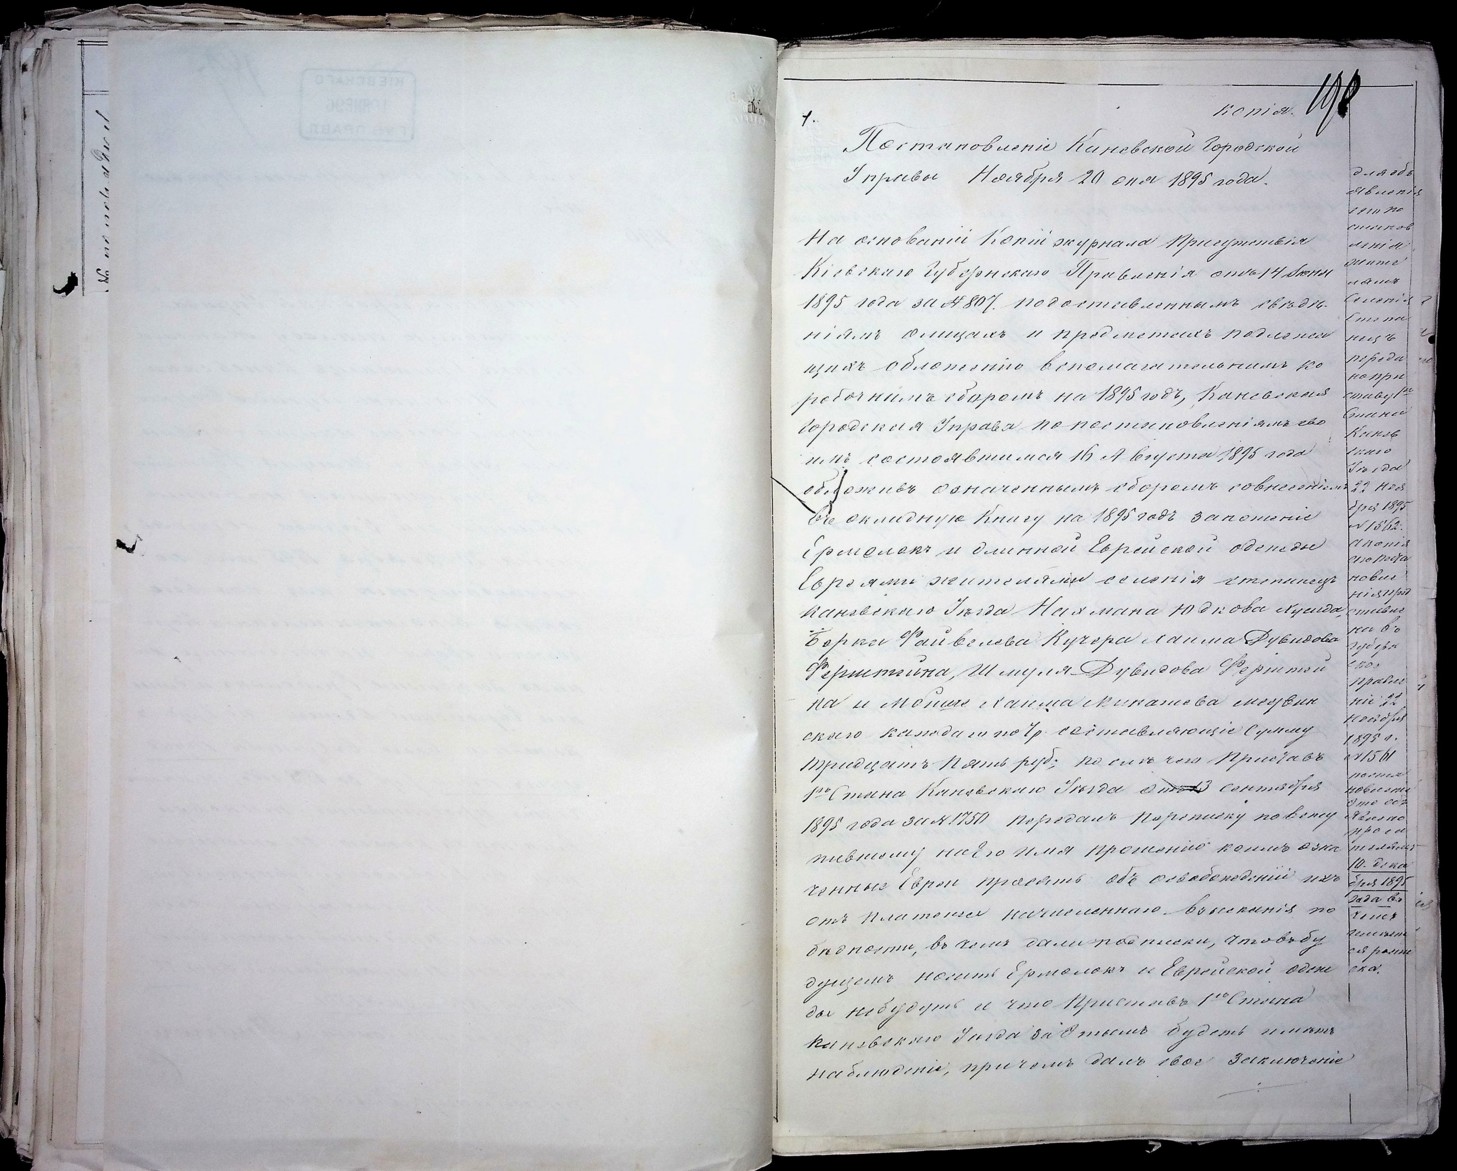 Копія.
198
1.
Постановленіе Каневской Городской
Управы Ноября 20 дня 1895 года.
На основаніи Копіи журнала Присутствія
Кіевскаго Губернскаго Правленія отъ 14 Іюня
1895 года за № 807. по доставленнымъ свѣдѣ-
ніямъ о лицахъ и предметахъ подлежа
щихъ обложенію вспомагательнымъ ко
робочнымъ сборомъ на 1895 годъ, Каневская
Городская Управа по постановленіямъ сво
имъ состоявшимся 16 Августа 1895 года
обложивъ означеннымъ сборомъ совнесеніемъ
въ окладную Книгу на 1895 годъ за ношеніе
Ермолокъ и длинной Еврейской одежды
Евреями жителями селенія Степанецъ
Каневскаго Уѣзда Нахмана Юдкова
Берка Файвелева Кучера Хаима Дувидова
Ферштейна, Шмуля Дувидова Ферштей
на и Хаима Медвин
скаго каждаго по 7 р. составляющіе Сумму
тридцать пять руб; послѣ чего Приставъ
1го Стана Каневскаго Уѣзда отъ 13 сентября
1895 года за № 1750 передалъ Переписку по
пившему на Его имя прошенію коимъ озна
ченные Евреи просятъ объ освобожденіи ихъ
отъ платежа начисленнаго взысканія по
бѣдности, въ чемъ дали подписки, что въ бу
дущемъ носить Ермолокъ и Еврейской одеж
ды небудутъ и что Приставъ 1го Стана
Каневскаго Уѣзда за этимъ будетъ имѣть
наблюденіе, причемъ далъ свое заключеніе
для объ
явленія
сего по
станов
ленія
жите
лямъ
Селенія
Степа
нецъ
переда
но при
ставу 1го
Стана
Канев
скаго
Уѣзда
22 Ноя
бря 1895
№ 1562.
а копія
новле
нія пред
ставле
на въ
Губерн
ское
Правле
ніе 22
Ноября
1895 г.
№ 1561
поста
новленіе
это объ
явлено
проси
телямъ
10. дека
бря 1895
года въ
чемъ
имѣет
ся роспи
ска.